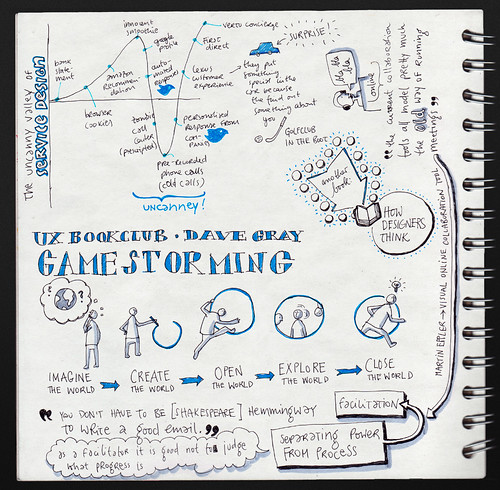 The uncanny valley of
SERVICE DESIGN
bank
state-
ment
browser
cookies
amazon
recommen-
dation
innocent
smoothie
google
profile
auto-
mated
responses
zombie
call
center
(prescripted)
pre-recorded
phone calls
(cold calls)
uncanney!
personalized
response from
com-
panies
lexus
customer
experience
first
direct
vertu concierge
SURPRISE
they put
something
special in the
car because
the find out
something about
you
GOLFCLUB
IN THE BOOT
online
"the current collaboration
tools all model pretty much
the old way of running
meetings"
another
book:
HOW
DESIGNERS
THINK
MARTIN EPPLER → VISUAL ONLINE COLLABORATION TOOL
UX BOOKCLUB · DAVE GRAY
GAMESTORMING
? ?
IMAGINE
THE WORLD
CREATE
THE WORLD
OPEN
THE WORLD
EXPLORE
THE WORLD
CLOSE
THE WORLD
"YOU DON'T HAVE TO BE [SHAKESPEARE] Hemmingway
to write a good email."
as a facilitator it is good not to judge
what progress is
facilitation
separating power
from process